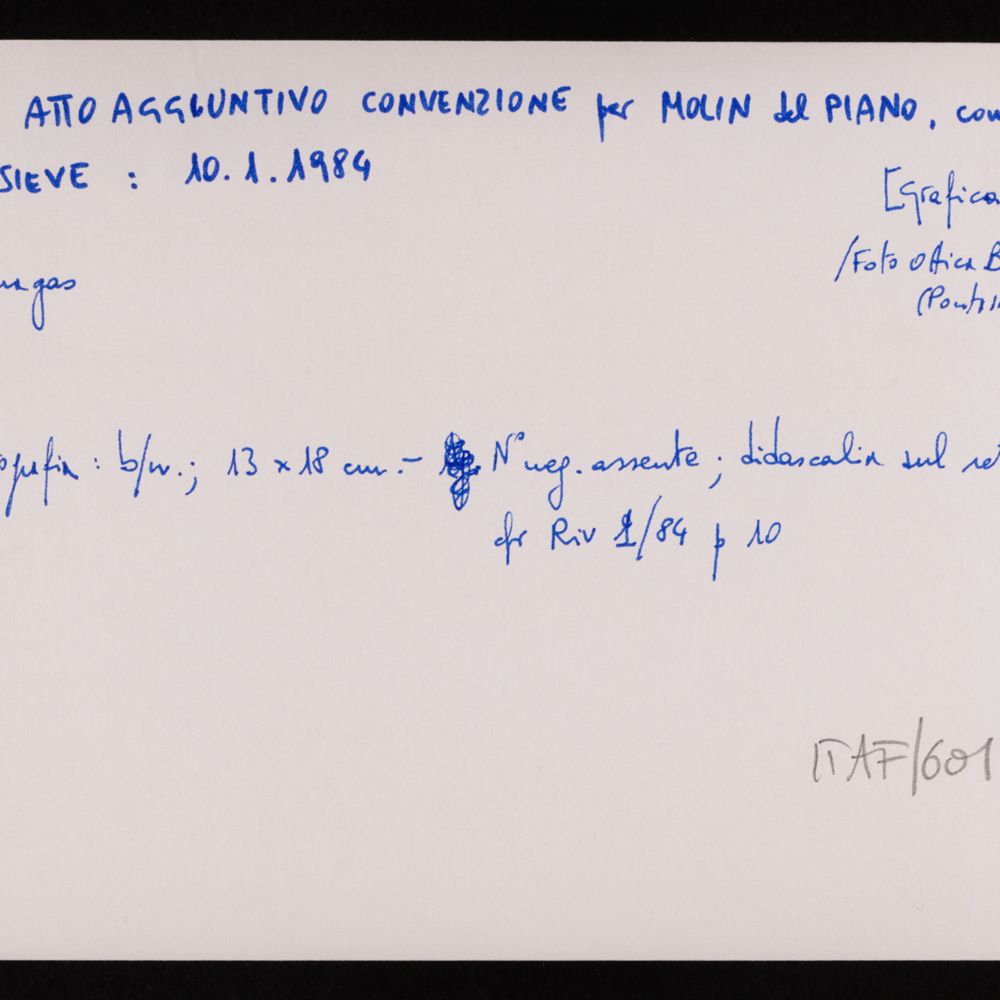 ATTO AGGIUNTIVO CONVENZIONE per MOLIN del PIANO, com
SIEVE : 10.1.1984
[Grafica
/Foto ottica B
gas
(Pont
: b/n.; 13 x 18 cm. - N° neg. assente; didascalia sul ret
cfr Riv 1/84 p 10
ITAF/601